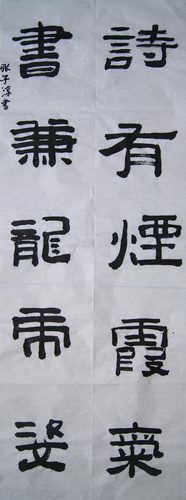 詩有煙霞氣
書兼龍虎姿
張子淳書